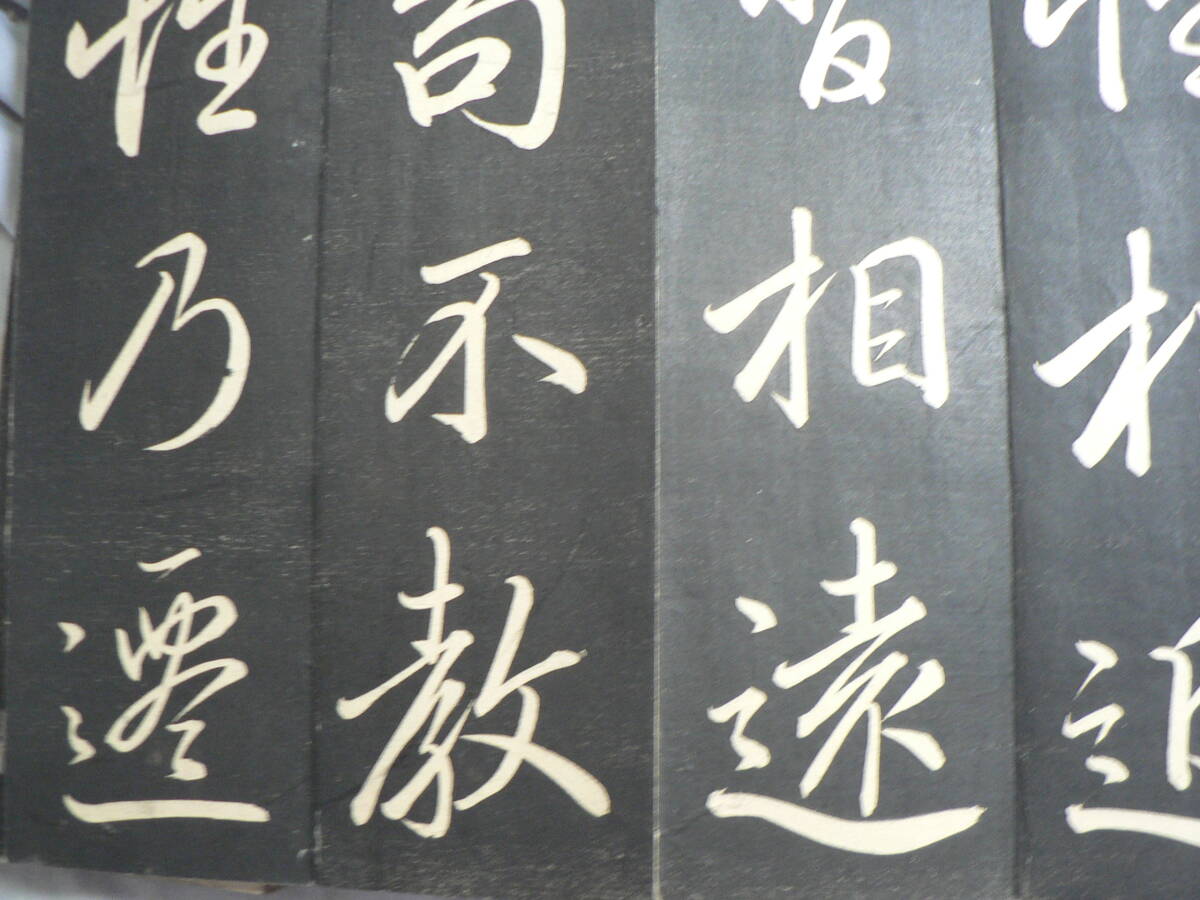 性相近
習相遠
苟不教
性乃遷